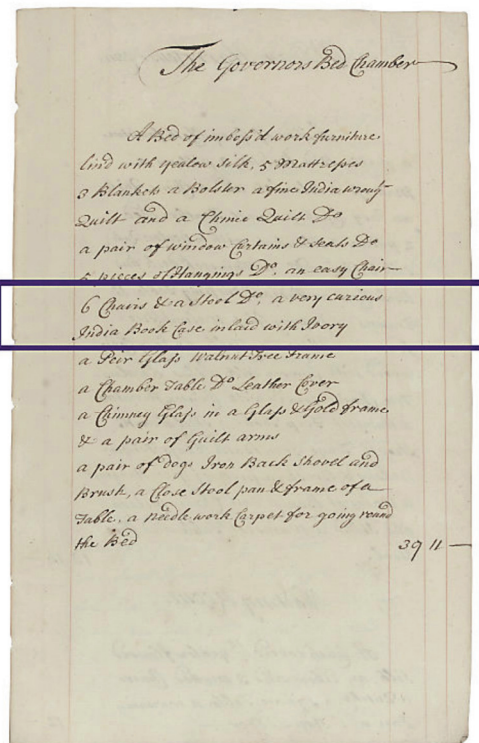 The Governors Bed Chamber
A Bed of imboss'd work furniture
lind with yealow silk, 5 Mattresses
3 Blankets a Bolster a fine India wrougt
Quilt and a Chinie Quilt Do
a pair of window Curtains & seats Do
5 pieces of Hangings Do, an easy Chair
6 Chairs & a Stool Do, a very curious
India Book Case inlaid with Ivory
a Peir Glass Walnut Tree Frame
a Chamber Table Do Leather Cover
a Chimney Glass in a Glass & Gold frame
& a pair of Guilt arms
a pair of dogs Iron Back Shovel and
Brush, a Close Stool pan & frame of a
Table, a needle work Carpet for going round
the Bed 39 11 —